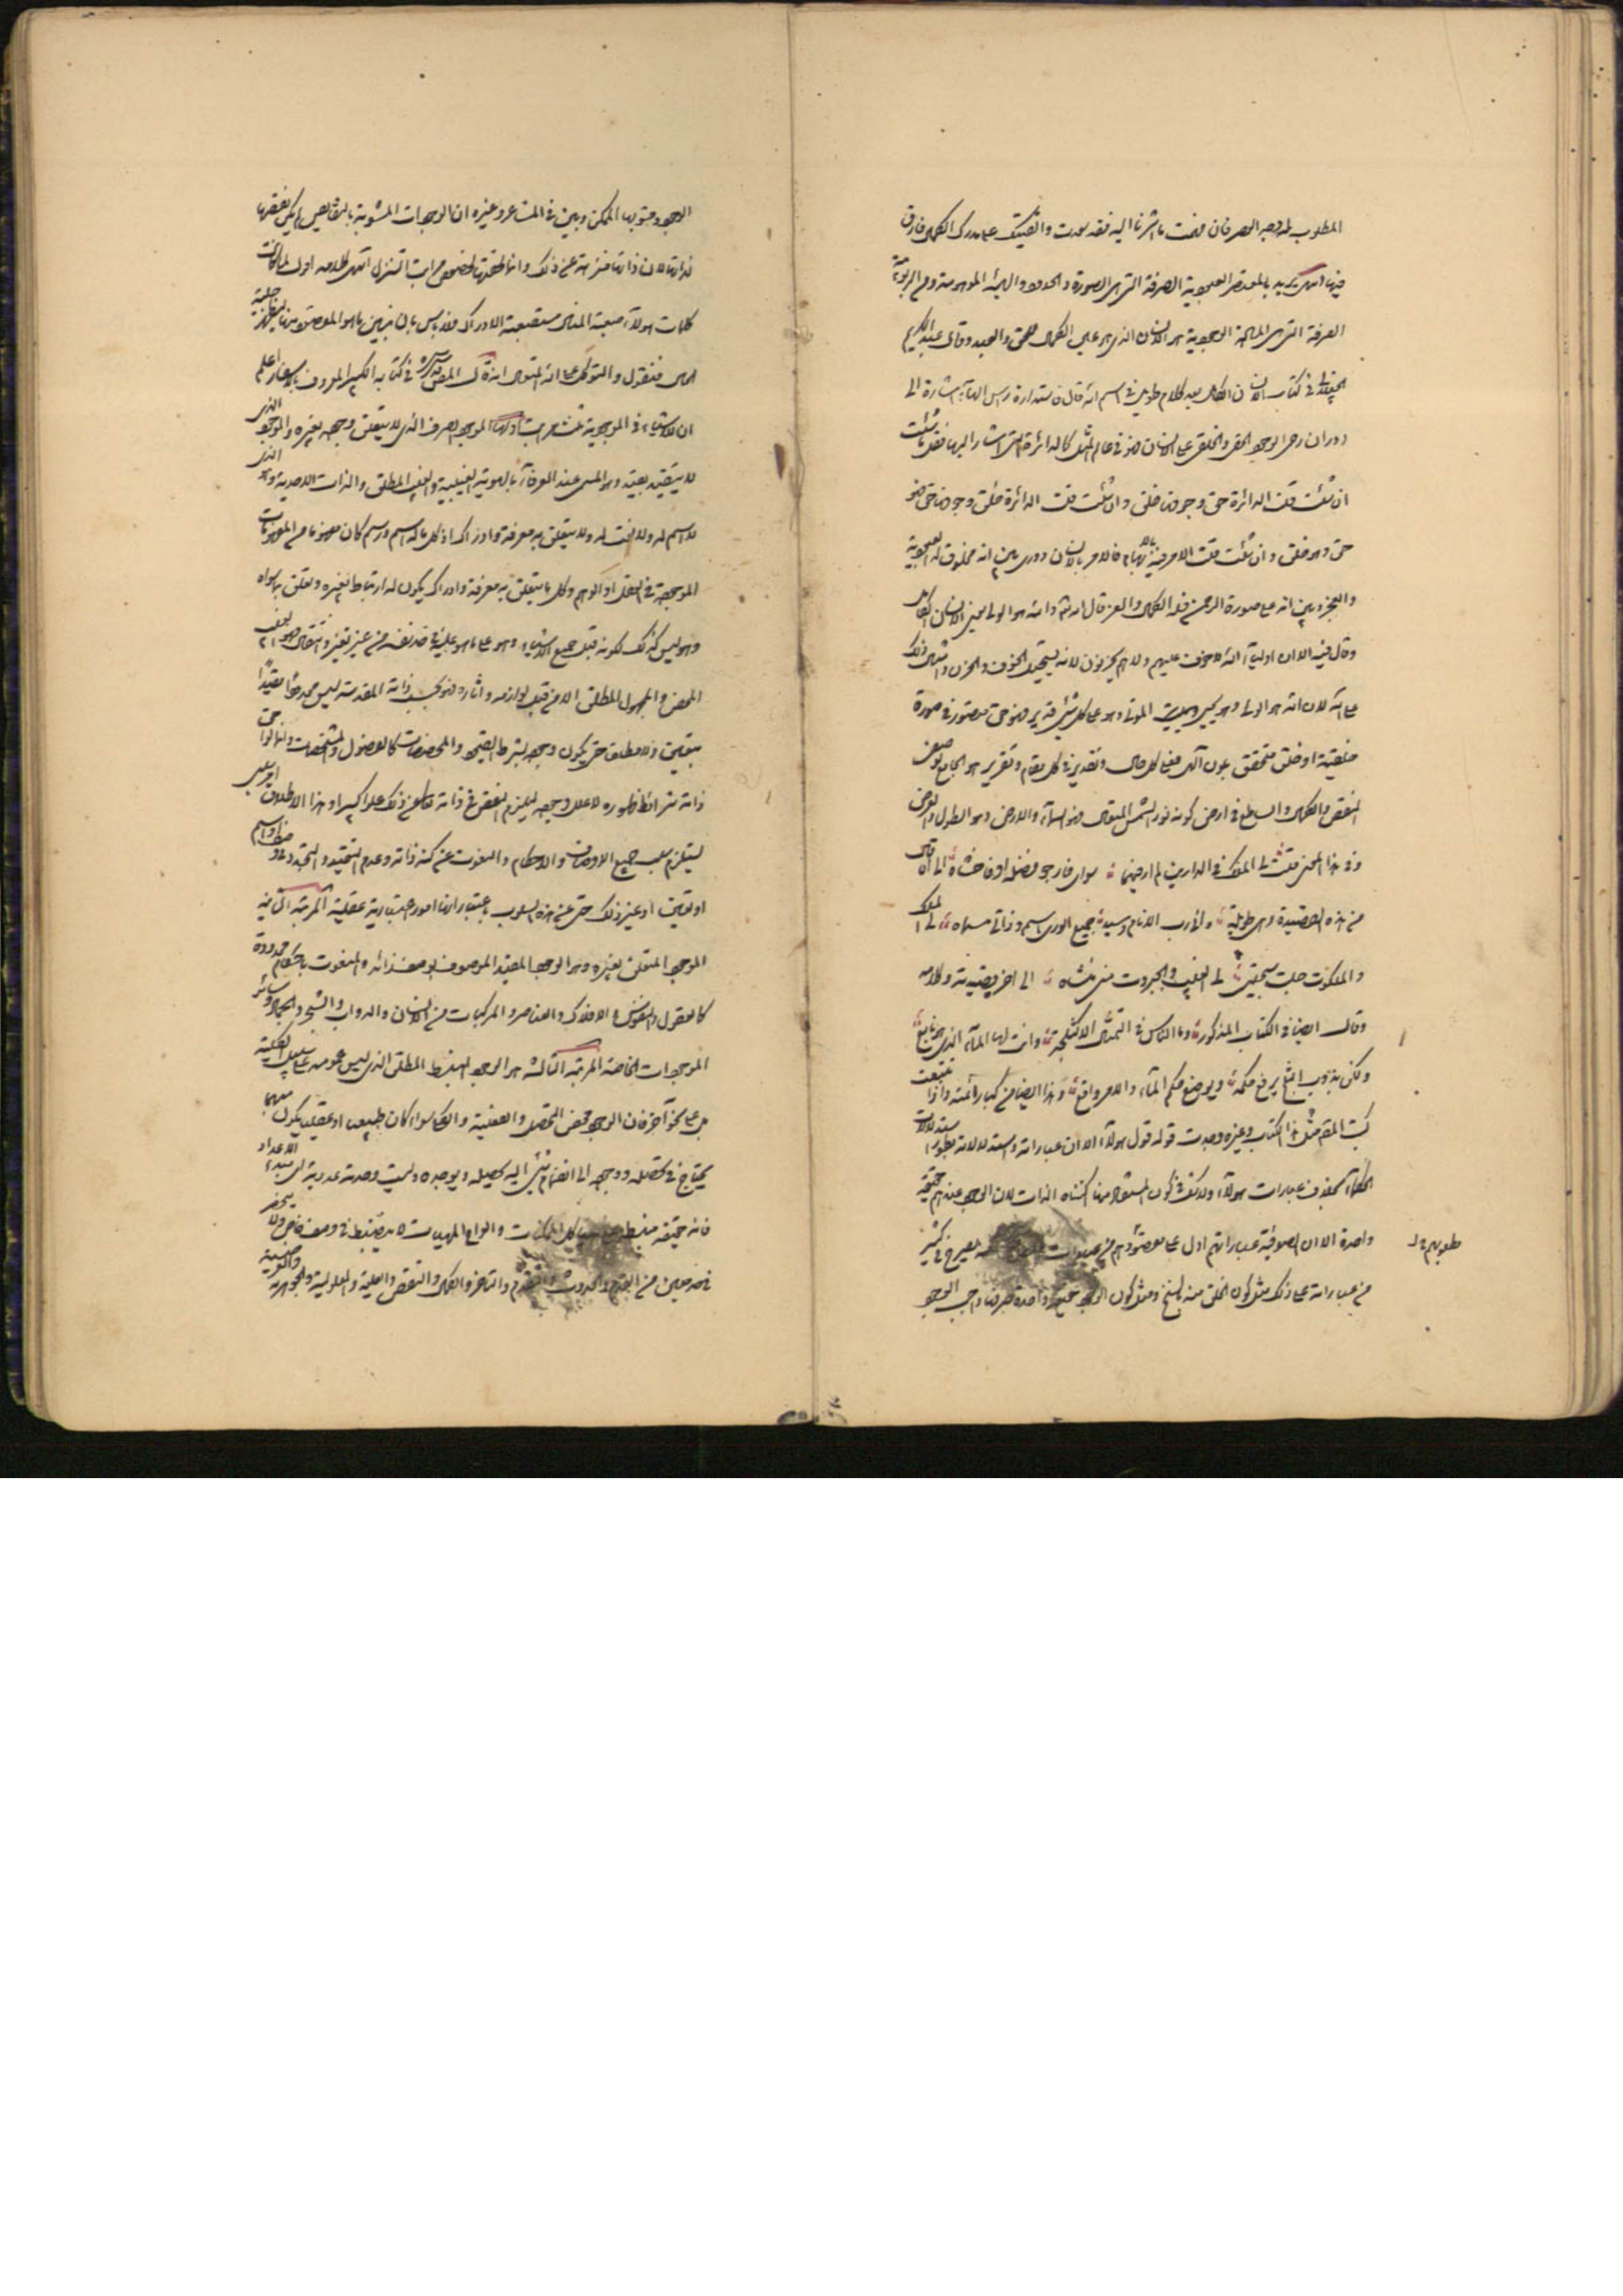 المطلوب لها وجه العرفان فهمت ما اشرنا اليه فقد سعدت والقيتك على مدرك الكمال فارق
فيها انتهى يريد بالمقتضى العبودية الصرفة التي هي الصورة والحدود والهيئة الموهومة ومع الربوبية
الصرفة التي هي المادة الوجوبية هو الانسان الذي هو على الكمال الحق والعبد وقال عبد الكريم
الجيلاني في كتاب الانسان الكامل بعد كلام طويل في اسم الله قال فاستدارة راس الهاء اشارة الى
دوران رحى الوجود الحقي والخلقي على الانسان فهو في عالم المثال كالدائرة التي اشار اليها فقل ما شئت
ان شئت قلت الدائرة حق وجوفها خلق وان شئت قلت الدائرة خلق وجوفها حق فهو
حق وهو خلق وان شئت قلت الامر فيه بالابهام فالامر بالانسان دوري بين انه مخلوق له العبودية
والعجز وبين انه على صورة الرحمن فله الكمال والعز قال الله والله هو الولي يعني الانسان الكامل
وقال فيه الا ان اولياء الله لا خوف عليهم ولا هم يحزنون لانه يستحيل الخوف والحزن وامثال ذلك
على الله لان الله هو الولي وهو يحيي ويميت الموتى وهو على كل شيء قدير فهو حق متصور في صورة
خلقية او خلق متحقق بمعان الهية فعلى كل حال وتقدير وفي كل مقام وتقرير هو الجامع لوصفي
النقص والكمال والساطع في ارض كونه بنور الشمس المتعال فهو السماء والارض وهو الطول والعرض
وفي هذا المعنى قلت لي الملك في الدارين لم ار فيهما سواي فارجو فضله او فاخشاه الى ان قال
من هذه القصيدة وهي طويلة واني رب للانام وسيد جميع الورى اسم وذاتي مسماه لي الملك
والملكوت نسجي وصنعتي لي الغيب والجبروت مني منشاه الى اخر قصيدته وكلامه
وقال ايضا في الكتاب المذكور وما الناس في التمثال الا كثلجة وانت لها الماء الذي هو نابع
ولكن بذوب الثلج يرفع حكمه ويوضع حكم الماء والامر واقع وهذا ايضا من كبار ائمته واذا تتبعت
كتب المقم مثل هذا الكتاب وغيره وجدت قوله قول هؤلاء الا ان عباراته
الحكماء بخلاف عبارات هؤلاء ولا شك في كون المستفاد منها اكتناه الذات لان الوجود عندهم حقيقة
واحدة الا ان الصوفية عباراتهم ادل على مقصودهم من عبارات
من عباراته على ذلك مثل كون الخلق منه بالسنخ ومثل كون الوجود حقيقة واحدة صرفها واجب الوجود
الوجود ومشوبها الممكن وبين في المشاعر وغيره ان الوجودات المشوبة بالنقايص لم يكن نقصها
لذاتها لان ذاتها منزهة عن ذلك وانما لحقتها لخصوص مراتب التنزل انتهى كلامه اقول لما كانت
كلمات هؤلاء صعبة المنال مستصعبة الادراك فلا باس بان نبين ما هو المقصود منها ليظهر حقيقة
الحال فنقول والتوكل على الله المتعال انه قال المص قدس سره في كتابه الكبير المعروف بالاسفار اعلم
ان للاشياء في الموجودية ثلث مراتب اولها الموجود الصرف الذي لا يتعلق وجوده بغيره والوجود الذي
لا يتقيد بقيد وهو المسمى عند العرفاء بالهوية الغيبية والغيب المطلق والذات الاحدية وهو الذي
لا اسم له ولا نعت له ولا يتعلق به معرفة وادراك اذ كل ما له اسم ورسم كان مفهوما من المفهومات
الموجودة في العقل او الوهم وكل ما يتعلق به معرفة وادراك يكون له ارتباط بغيره وتعلق بما سواه
وهو ليس كذلك لكونه قبل جميع الاشياء وهو على ما هو عليه في حد نفسه من غير تغير وانتقال فهو الغيب
المحض والمجهول المطلق الا من قبل لوازمه واثاره فهو بحسب ذاته المقدسة ليس محدودا مقيدا
بتعين ولا مطلقا حتى يكون وجوده بشرط القيود والمخصصات كالفصول والمشخصات وانما لواحق
ذاته شرائط ظهوره لا علل وجوده ليلزم النقص في ذاته تعالى عن ذلك علوا كبيرا وهذا الاطلاق امر سلبي
يستلزم سلب جميع الاوصاف والاحكام والنعوت عن كنه ذاته وعدم التقيد والتجدد في وصف او اسم
او تعين او غير ذلك حتى عن هذه السلوب باعتبار انها امور اعتبارية عقلية المرتبة الثانية
الموجود المتعلق بغيره وهو الوجود المقيد الموصوف بوصف زائد والمنعوت باحكام محدودة
كالعقول والنفوس والافلاك والعناصر والمركبات من الانسان والدواب والشجر والجماد وسائر
الموجودات الخاصة المرتبة الثالثة هو الوجود المنبسط المطلق الذي ليس عمومه على سبيل الكلية
بل على نحو آخر فان الوجود محض التحصل والفعلية والكلي سواء كان طبيعيا او عقليا يكون مبهما
يحتاج في تحصله ووجوده الى انضمام شيء اليه يحصله ويوجده وليست وحدته عددية اي مبدء الاعداد
فانه حقيقة منبسط على هياكل الممكنات والواح المهيات لا ينضبط في وصف خاص ولا ينحصر
في حد معين من القدم والحدوث والتقدم والتاخر والكمال والنقص والعلية والمعلولية والجوهرية والعرضية